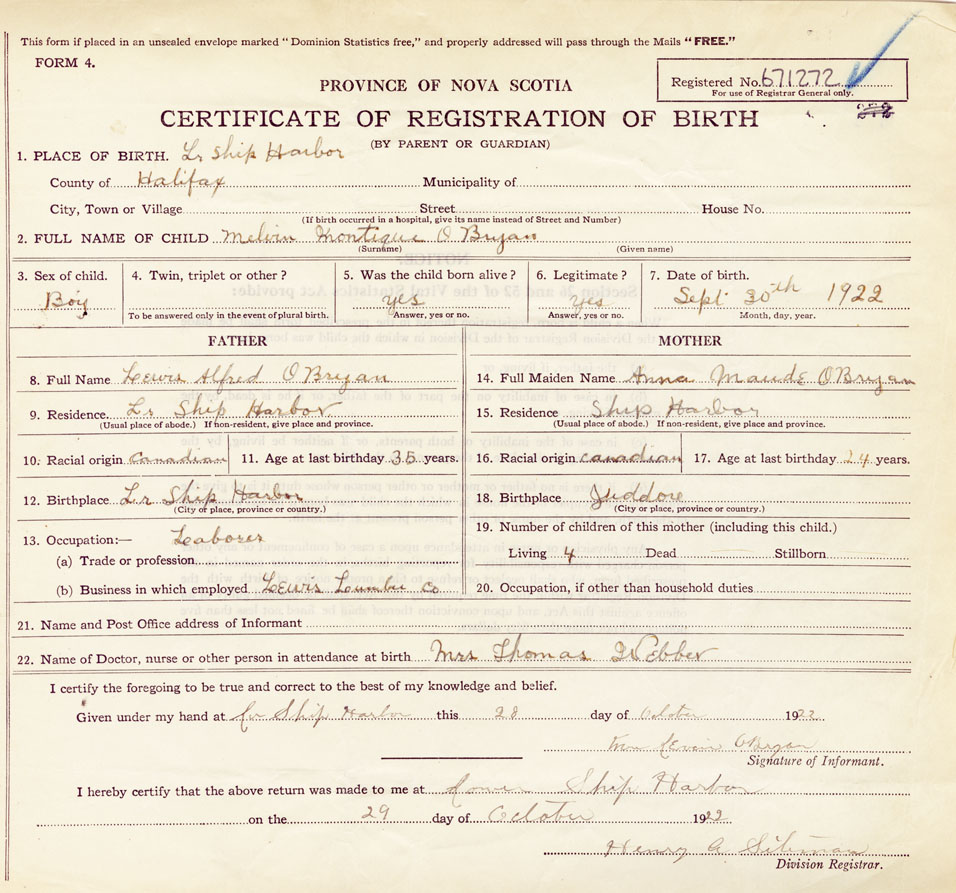 This form if placed in an unsealed envelope marked "Dominion Statistics free," and properly addressed will pass through the Mails "FREE."
FORM 4.
PROVINCE OF NOVA SCOTIA
Registered No. 671272
For use of Registrar General only.
CERTIFICATE OF REGISTRATION OF BIRTH
(BY PARENT OR GUARDIAN)
1. PLACE OF BIRTH. Lr Ship Harbor
County of Halifax Municipality of
City, Town or Village Street House No.
(If birth occurred in a hospital, give its name instead of Street and Number)
2. FULL NAME OF CHILD Melvin Montique O Bryan
(Surname) (Given name)
3. Sex of child. 4. Twin, triplet or other? 5. Was the child born alive? 6. Legitimate? 7. Date of birth.
Boy yes Yes Sept 30th 1922
To be answered only in the event of plural birth. Answer, yes or no. Answer, yes or no. Month, day, year.
FATHER MOTHER
8. Full Name Lewis Alfred O Bryan 14. Full Maiden Name Anna Maude O Bryan
9. Residence. Lr Ship Harbor 15. Residence Ship Harbor
(Usual place of abode.) If non-resident, give place and province. (Usual place of abode.) If non-resident, give place and province.
10. Racial origin Canadian 11. Age at last birthday 35 years. 16. Racial origin Canadian 17. Age at last birthday 24 years.
12. Birthplace Lr Ship Harbor 18. Birthplace Jeddore
(City or place, province or country.) (City or place, province or country.)
13. Occupation:— Laborer 19. Number of children of this mother (including this child.)
(a) Trade or profession Living 4 Dead Stillborn
(b) Business in which employed Lewis Lumber Co 20. Occupation, if other than household duties
21. Name and Post Office address of Informant
22. Name of Doctor, nurse or other person in attendance at birth Mrs Thomas Webber
I certify the foregoing to be true and correct to the best of my knowledge and belief.
Given under my hand at Lr Ship Harbor this 28 day of October 1922
O Bryan
Signature of Informant.
I hereby certify that the above return was made to me at Lower Ship Harbor
on the 29 day of October 1922
Henry A.
Division Registrar.